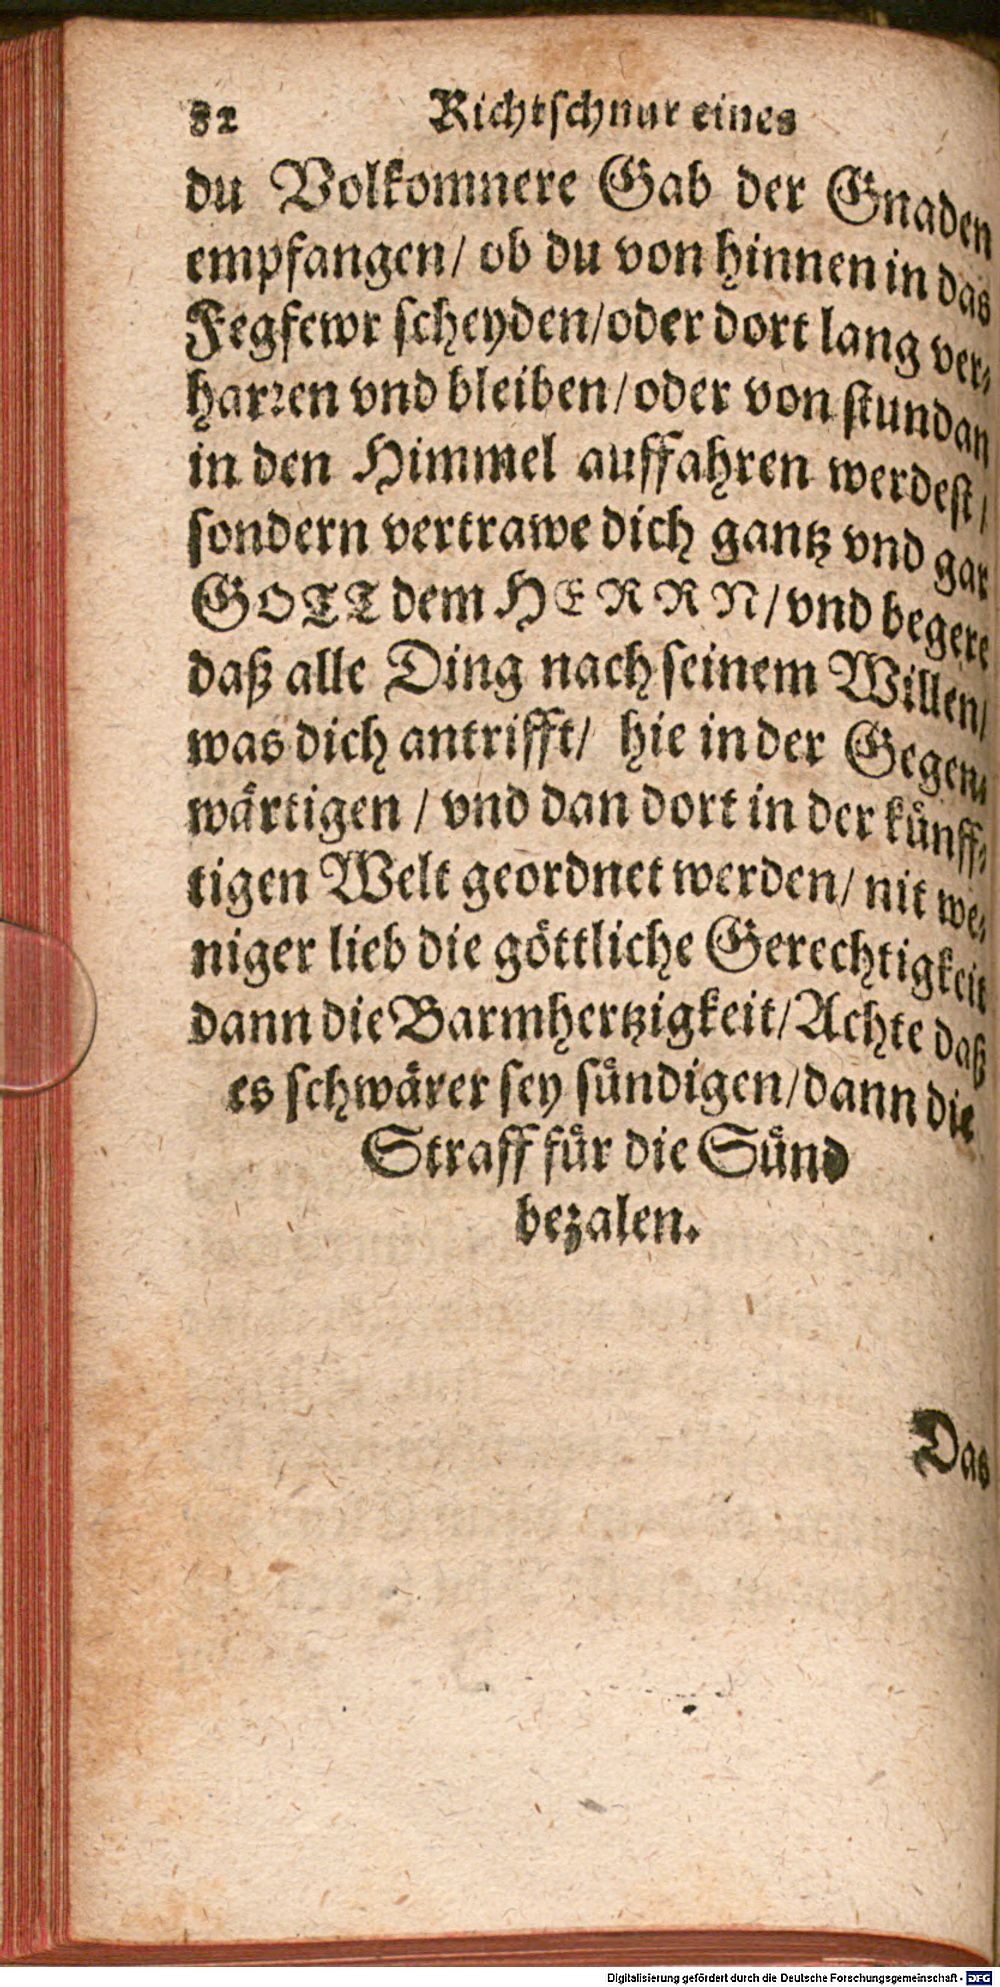 82 Richtschnur eines
du Volkomnere Gab der Gnaden
empfangen/ ob du von hinnen in das
Fegfewr scheyden/oder dort lang ver-
harren vnd bleiben/oder von stundan
in den Himmel auffahren werdest/
sondern vertrawe dich gantz vnd gar
GOTT dem HERRN/vnd begere
daß alle Ding nach seinem Willen/
was dich antrifft/ hie in der Gegen-
wärtigen / vnd dan dort in der künff-
tigen Welt geordnet werden/ nit we-
niger lieb die göttliche Gerechtigkeit
dann die Barmhertzigkeit/Achte daß
es schwärer sey sündigen/dann die
Straff für die Sünd
bezalen.
Das
Digitalisierung gefördert durch die Deutsche Forschungsgemeinschaft - DFG